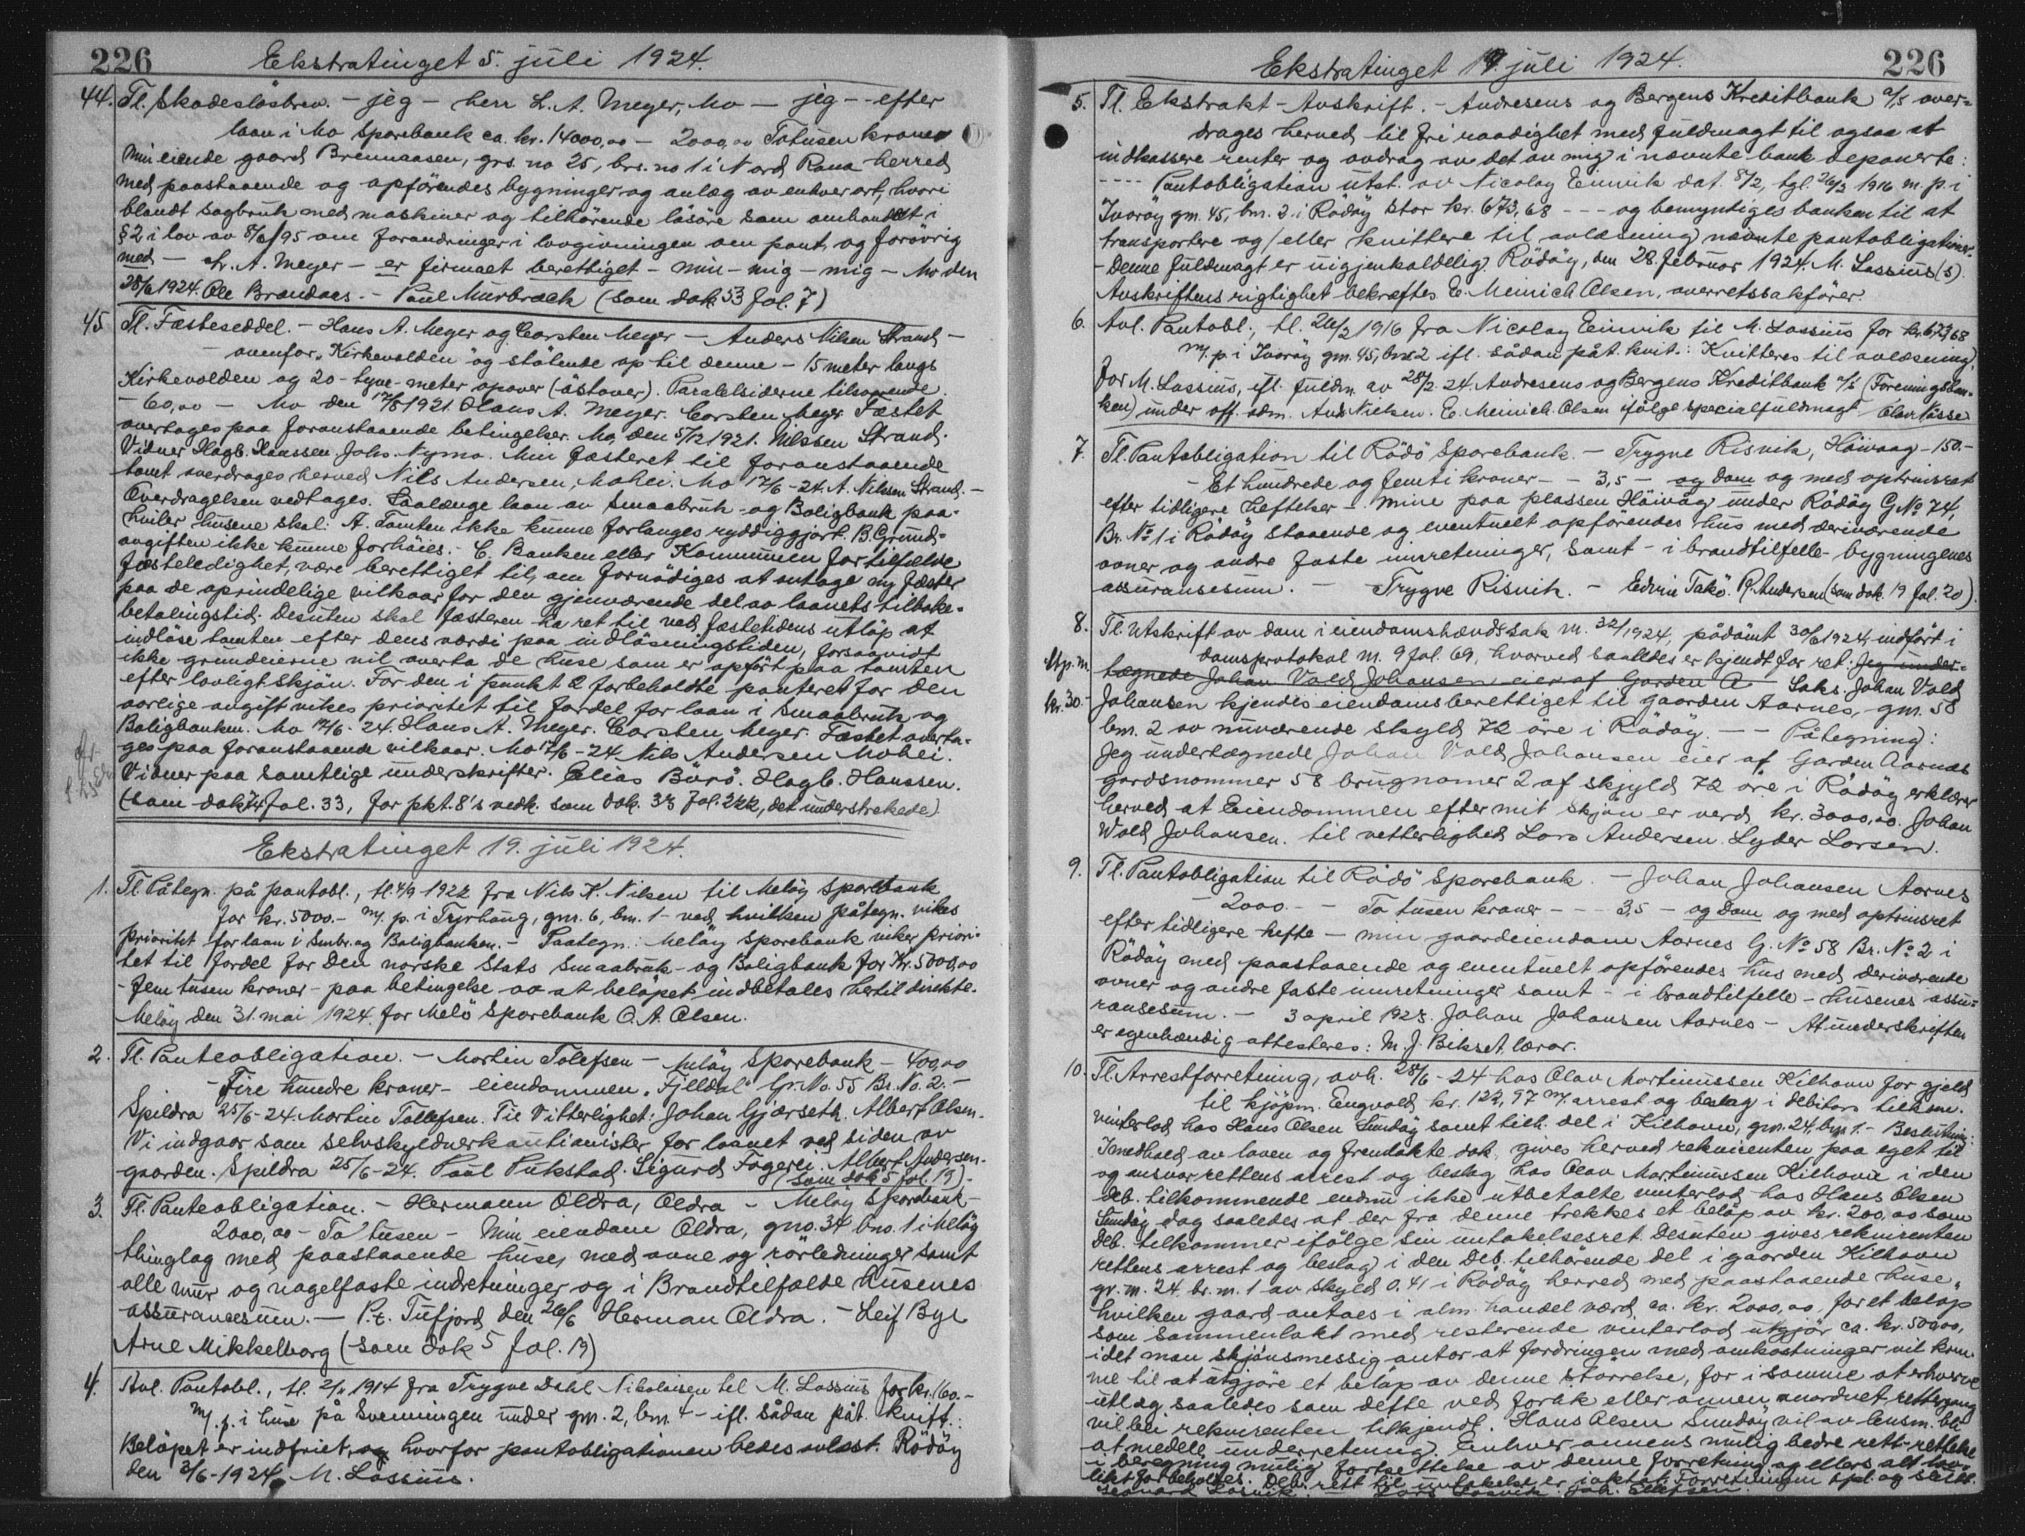 226
Ekstratinget 5. juli 1924.
44. Tl. Skadeslösbrev. - jeg - herr L. A. Meyer, Mo - jeg - efter
laan i Mo Sparebank ca. kr. 14000,00 - 2000,00 Totusen kroner
Min eiende gaard Brennaasen, grs. no 25, brs. no 1 i Nord Rana herred
med paastaaende og opförendes bygninger og anlæg av enhver art, hvori
blandt sagbruk med maskiner og tilhörende lösöre som omhandlet i
§ 2 i lov av 8/6/95 om forandringer i lovgivningen om pant, og forövrig
med - L. A. Meyer - er firmaet berettiget - min - mig - mig - Mo den
28/6 1924. Ole Brendaas. - Paul Murbræck (som dok 53 fol. 7)
45 Tl. Fæsteseddel. - Hans A. Meyer og Carsten Meyer - Anders Nilsen Strand -
- ovenfor „Kirkevolden" og stötende op til denne - 15 meter langs
Kirkevolden og 20 - tyve - meter opover (östover). Paralelsiderne tilsvarende.
- 60,00 - Mo den 17/8 1921 Hans A. Meyer. Carsten Meyer. Fæstet
overtages paa foranstaaende betingelser. Mo, den 5/12 1921. Nilssen Strand.
Vidner Hagb. Hanssen. Johs. Nymo. Min fæsteret til foranstaaende
tomt overdrages herved Nils Andersen, Mohei. Mo 17/6 - 24. A. Nilssen Strand. -
Overdragelsen vedtages. Saalænge laan av Smaabruk- og Boligbank paa-
hviler husene skal: A. Tomten ikke kunne forlanges ryddiggjort. B. Grund-
avgiften ikke kunne forhöies. C. Banken eller Kommunen for tilfælde
fæsteledighet, være berettiget til, om fornödiges at antage ny fæster
paa de oprindelige vilkaar for den gjenværende del av laanets tilbake-
betalingstid. Desuten skal fæsteren ha ret til ved fæstetidens utlöp at
indlöse tomten efter dens værdi paa indlösningstiden, forsaavidt
ikke grundeierne vil overta de huse som er opfört paa tomten
efter lovligt skjön. For den i punkt 2 forbeholdte panteret for den
aarlige avgift vikes prioritet til fordel for laan i Smaabruk og
Boligbanken. Mo 17/6 - 24. Hans A. Meyer. Carsten Meyer. Fæstet overta-
ges paa foranstaaende vilkaar. Mo 17/6 - 24 Nils Andersen Mohei.
Vidner paa samtlige underskrifter. Elias Börö. Hagb. Hanssen.
(som dok 74 fol. 33, for pkt. 8's vedk. som dok. 38 fol. 222, det understrekede)
Ekstratinget 19. juli 1924.
1. Tl. Påtegn. på pantobl., tl. 4/9 1922 fra Nils K. Nilsen til Melöy Sparebank
for kr. 5000.- m/ p. i Tryhaug, gm. 6, bm. 1 - ved hvilken påtegn. vikes
prioritet for laan i Smbr. og Boligbanken. - Paategn.: Melöy Sparebank viker priori-
tet til fordel for Den norske Stats Smaabruk- og Boligbank for Kr. 5000,00
- fem tusen kroner - paa betingelse av at belöpet indbetales hertil direkte.
Melöy den 31. mai 1924. for Melö Sparebank O. A. Olsen.
2. Tl. Panteobligation. - Martin Tolefsen - Melöy Sparebank - 400,00
- Fire hundre kroner - eiendommen „Fjelldal" Gr. No. 55 Br. No. 2. -
Spildra 25/6 - 24. Martin Tollefsen. Til Vitterlighet: Johan Gjærseth. Albert Olsen.
Vi indgaar som selvskyldnerkautionister for laanet ved siden av
gaarden. Spildra 25/6 - 24. Paul Pukstad. Sigurd Fagerli. Albert Andersen.
(som dok 5 fol. 19).
3. Tl. Panteobligation. - Hermann Oldra, Oldra - Melöy Sparebank -
2000,00 - To tusen - Min eiendom Oldra, gno. 34 bno. 1 i Melöy
thinglag med paastaaende huse, med ovne og rörledninger samt
alle mur og nagelfaste indretninger og i Brandtilfælde husenes
assurancesum. - P.t. Tufjord den 26/6 Herman Oldra. - Leif Bye
Arne Mikkelborg (som dok 5 fol. 19)
4. Avl. Pantobl., tl. 2/11 1914 fra Trygve Dahl Nikolaisen til M. Lassius for kr. 160.-
m/ p. i huse på Svenningen under gm. 2, bm. 4 - ifl. sådan påt. kvitt.:
Belöpet er indfriet, og hvorfor pantobligationen bedes avlæst. Rödöy
den 3/6 - 1924. M. Lassius.
Ekstratinget 19. juli 1924.
226
5. Tl. Ekstrakt - Avskrift. - Andresens og Bergens Kreditbank a/s over-
drages herved til fri raadighet med fuldmagt til ogsaa at
indkassere renter og avdrag av det av mig i nævnte bank deponerte:
- - - - Pantobligation utst. av Nicolay Einvik dat. 8/2, tgl. 26/2 1916 m. p. i
Ivaröy gm. 45, bm. 2 i Rödöy stor kr. 673,68 - - - og bemyntiges banken til at
transportere og/eller kvittere til avlæsning nævnte pantobligationer.
- Denne fuldmagt er uigjenkaldelig. Rödöy, den 28. februar 1924. M. Lassius (s).
Avskriftens rigtighet bekræftes E. Meinich Olsen, overretssakförer.
6. Avl. Pantobl., tl. 26/2 1916 fra Nicolay Einvik til M. Lassius for kr. 673,68
m/ p. i Ivaröy gm. 45, bm. 2 ifl. sådan påt. kvit.: Kvitteres til avlæsning.
For M. Lassius, ifl. fuldm. av 28/2 - 24. Andresens og Bergens Kreditbank a/s (Foreningsban-
ken) under off. adm. Aud. Nielsen. E. Meinich Olsen ifölge specialfuldmagt Olav Næsse
7. Tl. Pantobligation til Rödö Sparebank. - Trygve Risvik, Höivaag - 150.-
- Et hundrede og femti kroner - - 3,5 - og Dom og med optrinsret
efter tidligere heftelser - mine paa plassen Höivåg under Rödöy G. No 74,
Br. No 1 i Rödöy staaende og eventuelt opförendes hus med deriværende
ovner og andre faste innretninger, samt - i brandtilfelle - bygningenes
assuransesum. - Trygve Risvik. - Edvin Takö. R. Andersen (som dok. 19 fol. 20).
8. Tl. Utskrift av dom i eiendomshævdssak nr. 32/1924, pådömt 30/6 1924, indfört i
domsprotokol nr. 9 fol. 69, hvorved saaledes er kjendt for ret: Jeg under-
Stp. m. tegnede Johan Vold Johansen eier af Garden A Saks. Johan Vold
kr. 30.- Johansen kjendes eiendomsberettiget til gaarden Aarnes, gm. 58
bm. 2 av nuværende skyld 72 öre i Rödöy. - - Påtegning:
Jeg undertegnede Johan Vold Johansen eier af Garden Aarnæs
gardsnommer 58 brugnomer 2 af skjyld 72 öre i Rödöy erklærer
herved at Eiendommen efter mit skjön er verd kr. 3000,00. Johan
Wold Johansen. til vetterlighed Lars Andersen. Lyder Larsen.
9. Tl. Pantobligation til Rödö Sparebank. - Johan Johansen Aarnes
- 2000.- - To tusen kroner - - 3,5 - og Dom og med optrinsret
efter tidligere hefte - min gaardeiendom Aarnes G. No 58 Br. No 2 i
Rödöy med paastaaende og eventuelt opförendes hus med derværende
ovner og andre faste innretninger samt - i brandtilfelle - husenes assu-
ransesum. - 3 april 1923. Johan Johansen Aarnes - At underskriften
er egenhændig attesteres: M. J. Bikset, lærer.
10. Tl. Arrestforretning, avh. 28/6 - 24 hos Olav Martinussen Kilhavn for gjeld
til kjöpm. Engvold kr. 129,97 m/ arrest og beslag i debitors tilkom.
vinterlod hos Hans Olsen Sundöy samt tilh. del i Kilhavn, gm. 24, bm. 1. - Beslutning:
I medhold av loven og fremlakte dok. gives herved rekvirenten paa eget til
og ansvar rettens arrest og beslag hos Olav Martinussen Kilhavn i den
deb. tilkommende endnu ikke utbetalte vinterlod hos Hans Olsen
Sundöy dog saaledes at der fra denne trekkes et belöp av kr. 200,00 som
deb. tilkommer ifölge sin untakelsesret. Desuten gives rekvirenten
rettens arrest og beslag i den deb. tilhörende del i gaarden Kilhavn
gr. nr. 24 br. nr. 1 av skyld 0,41 i Rödöy herred med paastaaende huse,
hvilken gaard antaes i alm. handel værd ca. kr. 2000,00, for et belöp
som sammenlakt med resterende vinterlod utgjör ca. kr. 500,00,
idet man skjönsmessig antar at fordringen med omkostninger vil kom-
me til at utgjöre et belöp av denne störrelse, for i samme at erhverve
utlæg saaledes som dette ved forlik eller annen anordnet rettergang
vil bli rekvirenten tilkjendt. Hans Olsen Sundöy vil av lensm. bli
at medele underretning. Enhver annens mulig bedre rett - rettelse
i beregning mulig fortsettelse av denne forretning og ellers alt lov-
likt forbeholdes. Deb. rett til untakelse er iaktat. Forretningen opl. og sluttet.